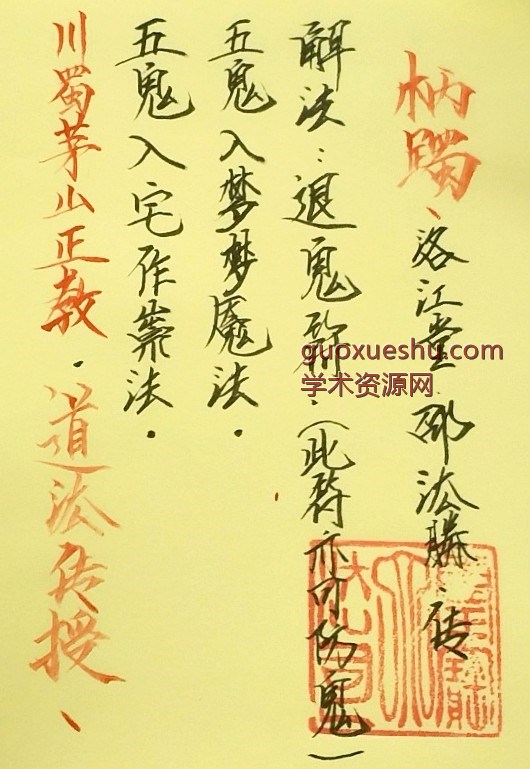 川蜀茅山正教．道法传授、
五鬼入宅作祟法．
五鬼入梦梦魇法．
解法：退鬼符．（此符亦可防鬼）
柄、洛江堂．邵法勝．传
guoxueshu.com
学术资源网